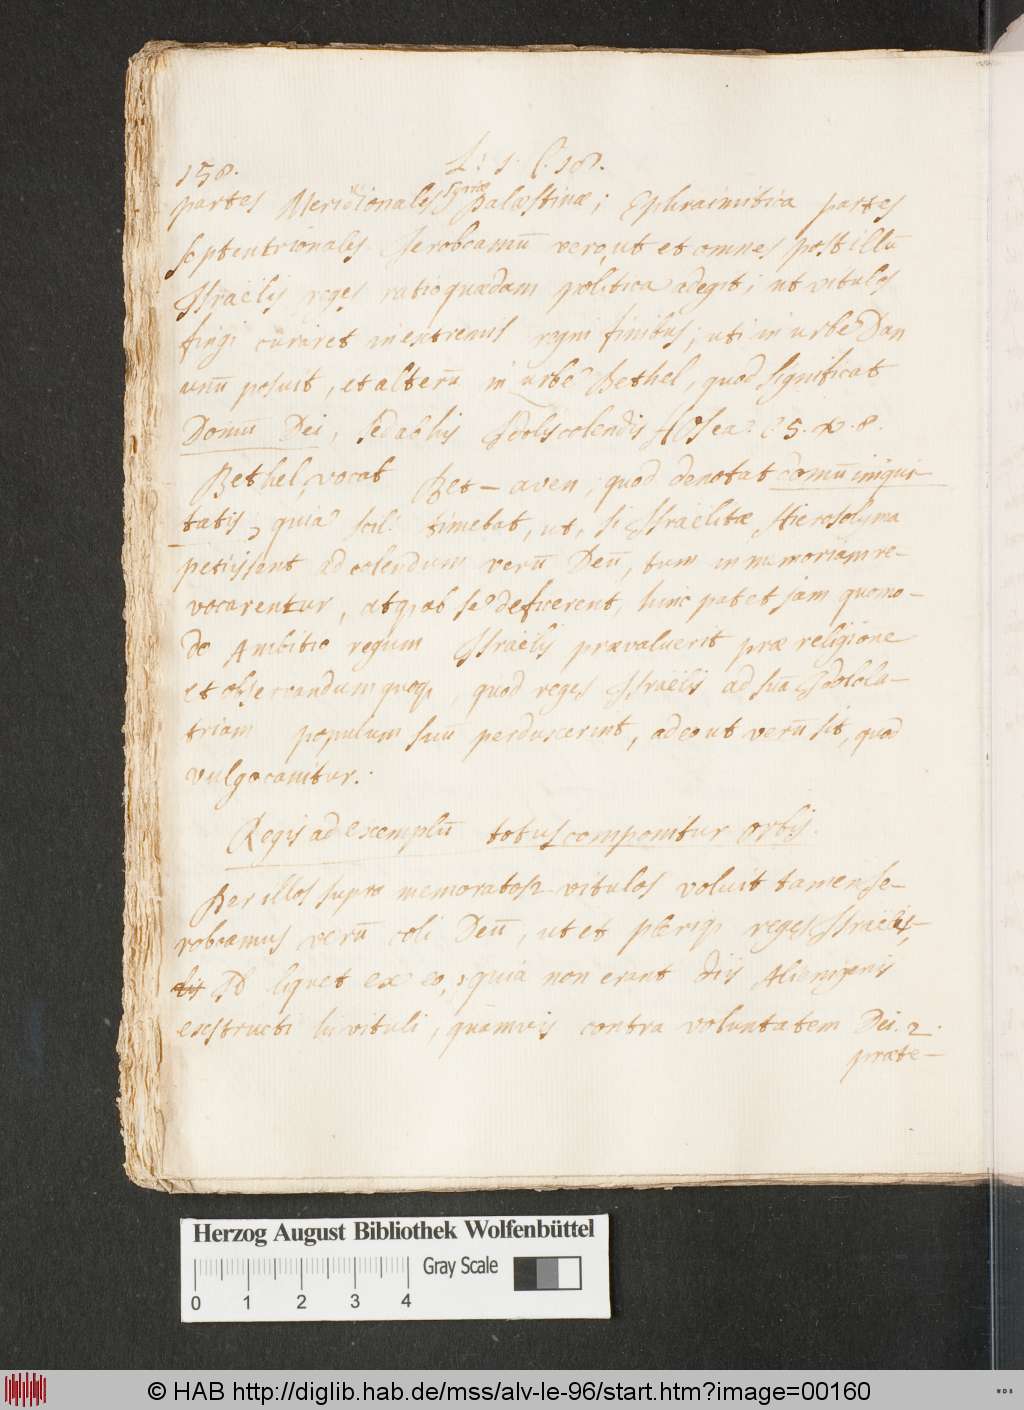 158.
L: 1. C. 18.
partes Meridionales Syriæ Palæstinæ; Ephraimitica partes
septentrionales. Jerobeamū vero, ut et omnes post illū
Israëlis reges ratio quædam politica adegit; ut vitulos
fingi curaret in extremis regni finibus; uti in urbe Dan
unū posuit, et alterū in urbe Bethel, quod significat
Domū Dei, sed ab his Idolis colendis Hosea. C. 5. v. 8.
Bethel, vocat Bet-aven, quod denotat domū iniqui-
tatis, quia scil: timebat, ut, si Israelitæ, Hierosolyma
petiissent ad colendum verū Deū, tum in memoriam re-
vocarentur, atq; ab se deficerent, hinc patet jam quomo-
do Ambitio regum Israëlis prævaluerit præ religione
et observandum quoq;, quod reges Israëlis ad suā Idolola-
triam populum suū perduxerint, adeo ut verū sit, quod
vulgo canitur:
Regis ad exemplū totus componitur orbis.
Per illos supra memoratos vitulos voluit tamen Je-
robeamus verū coli Deū, ut et pleriq; reges Israëlis,
Id liquet ex eo, 1. quia non erant diis Alienigenis
exstructi hi vituli, quamvis contra voluntatem Dei. 2.
præte-
Herzog August Bibliothek Wolfenbüttel
Gray Scale
0 1 2 3 4
© HAB http://diglib.hab.de/mss/alv-le-96/start.htm?image=00160